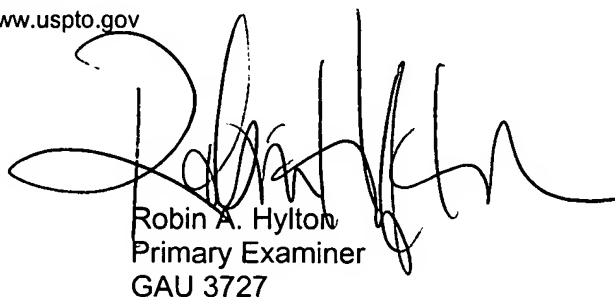 ww.uspto.gov
Robin A. Hylton
Robin A. Hylton
Primary Examiner
GAU 3727